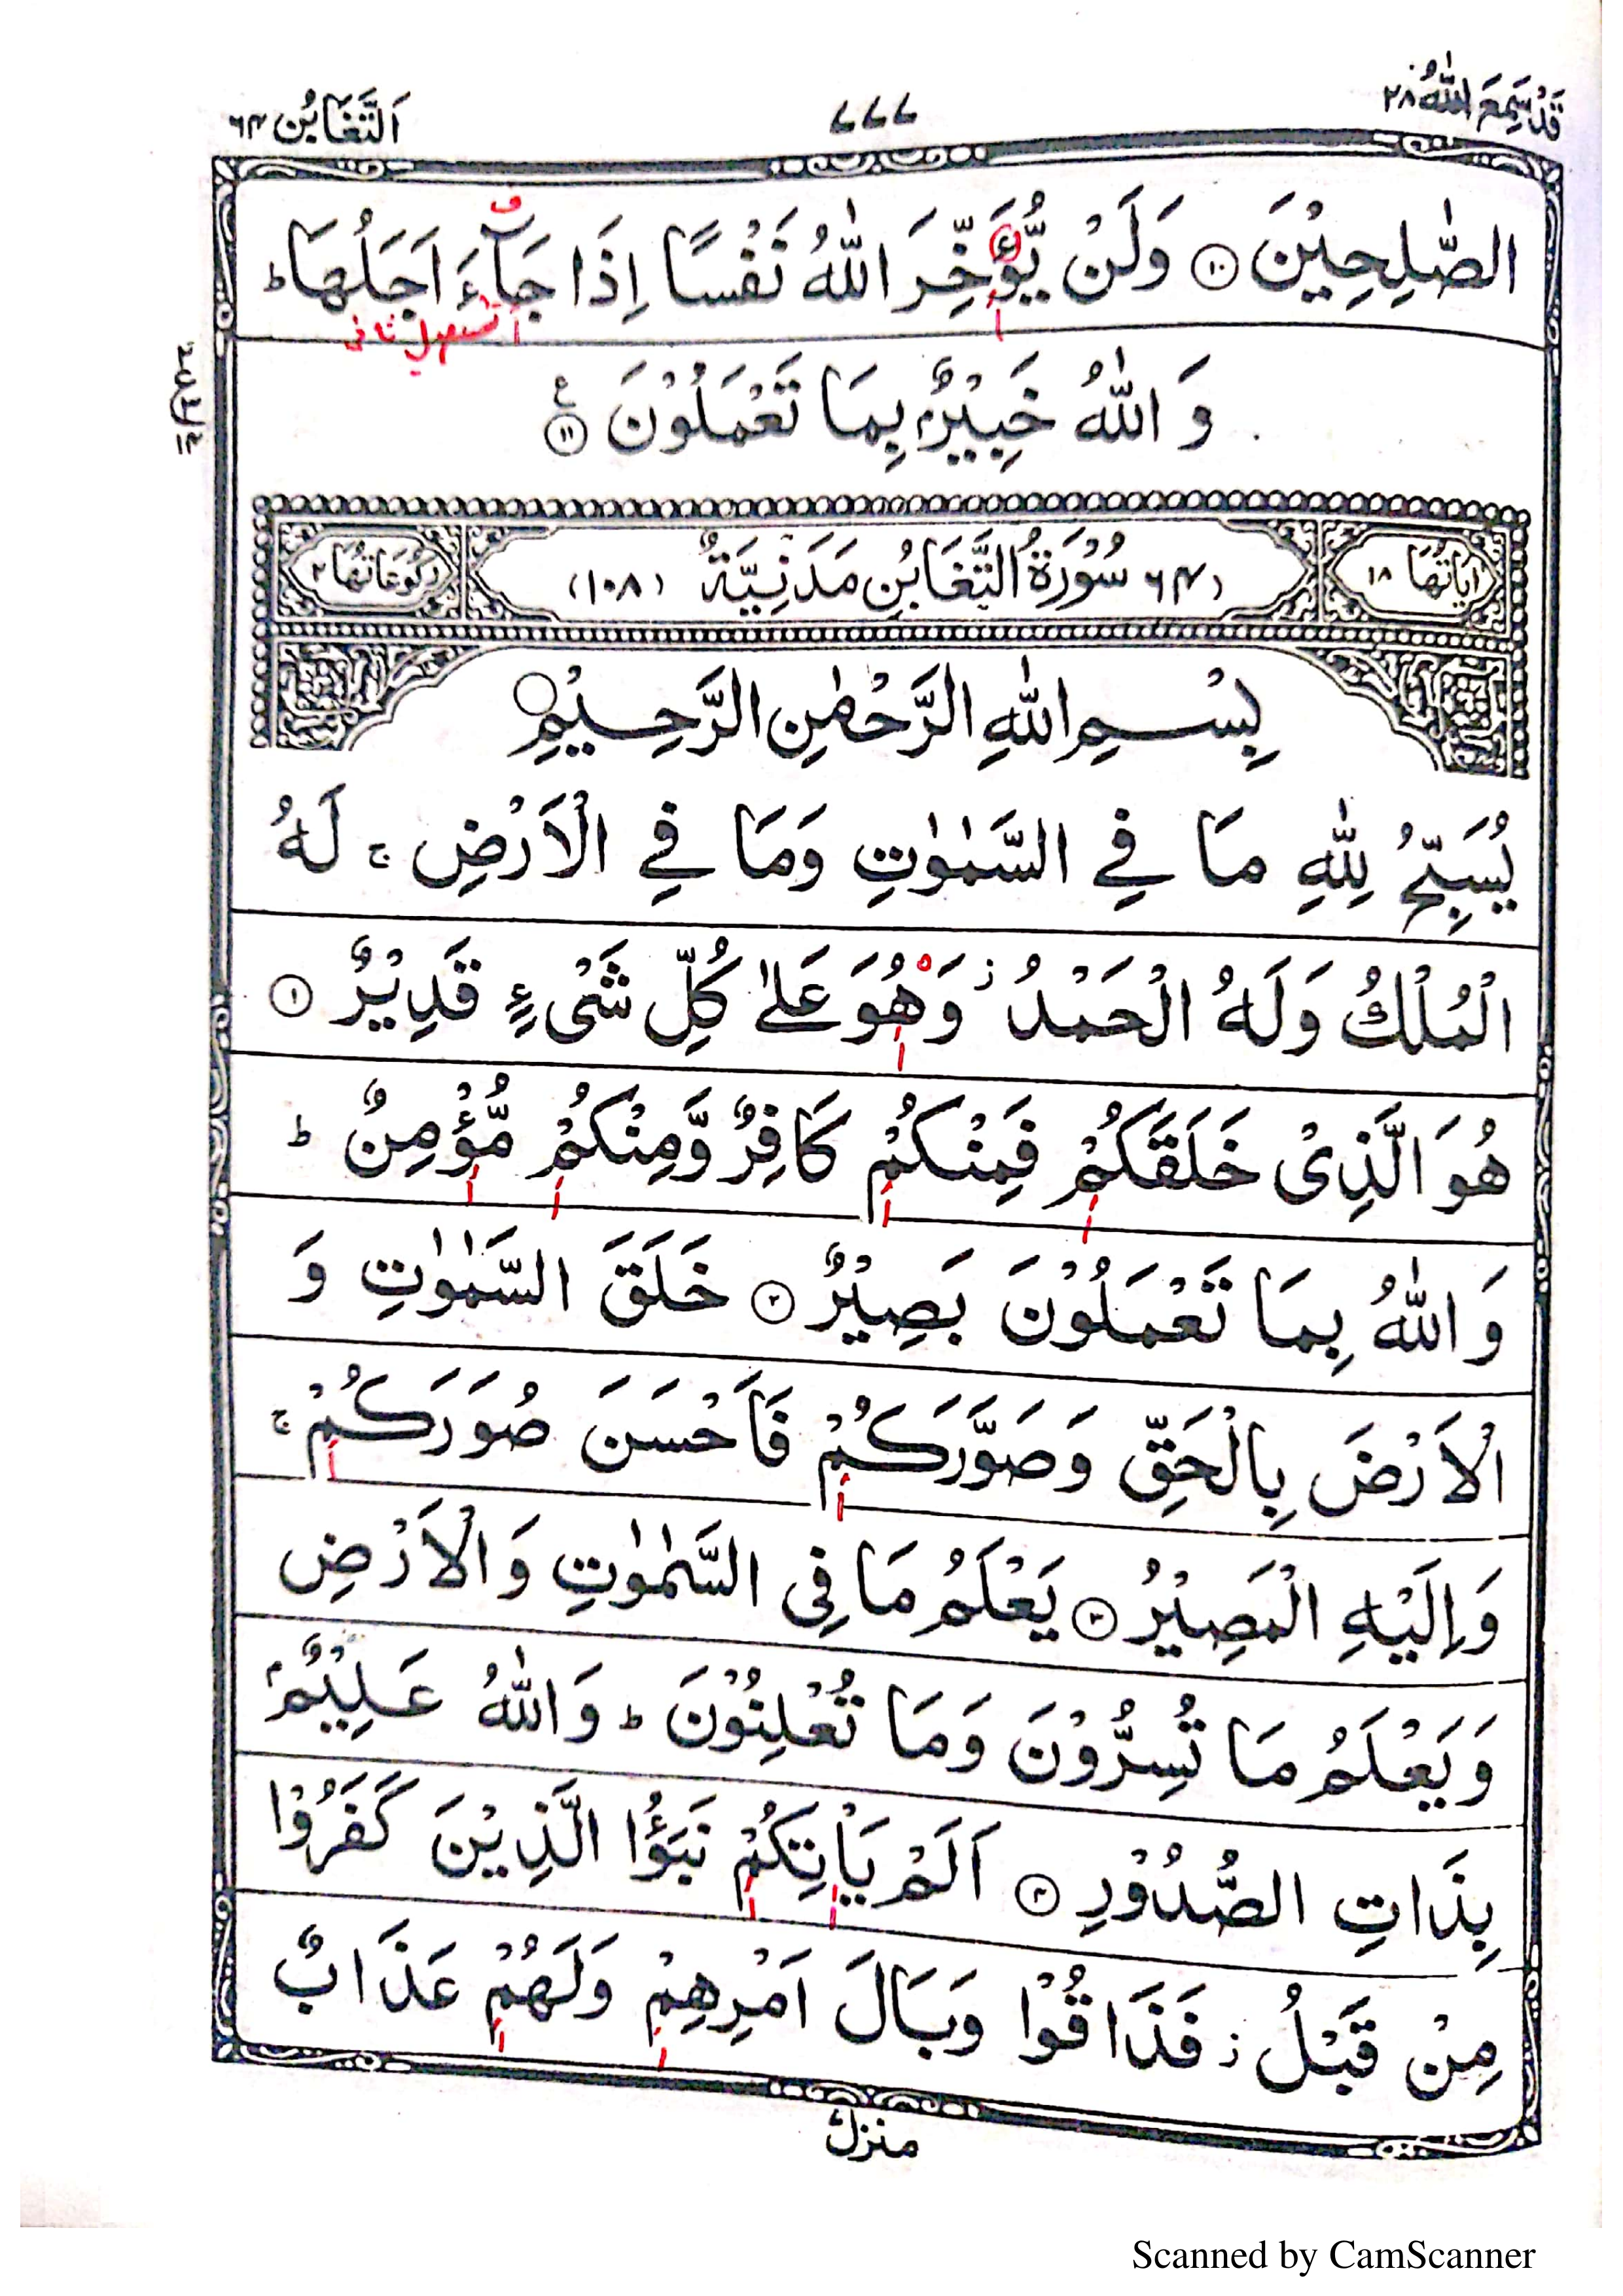 قَدْ سَمِعَ اللّٰهُ ٢٨
٧٧٧
اَلتَّغَابُن ٦٤
الصّٰلِحِيْنَ ١٠ وَلَنْ يُّؤَخِّرَ اللّٰهُ نَفْسًا اِذَا جَآءَ اَجَلُهَا ط
تسهيل ثانى
وَ اللّٰهُ خَبِيْرٌۢ بِمَا تَعْمَلُوْنَ ١١ ع
اٰيَاتُهَا ١٨
(٦٤) سُوْرَةُ التَّغَابُنِ مَدَنِيَّةٌ (١٠٨)
رُكُوْعَاتُهَا ٢
بِسْمِ اللّٰهِ الرَّحْمٰنِ الرَّحِيْمِ
يُسَبِّحُ لِلّٰهِ مَا فِي السَّمٰوٰتِ وَمَا فِي الْاَرْضِ ج لَهُ
الْمُلْكُ وَلَهُ الْحَمْدُ ز وَهُوَ عَلٰى كُلِّ شَىْءٍ قَدِيْرٌ ١
هُوَ الَّذِىْ خَلَقَكُمْ فَمِنْكُمْ كَافِرٌ وَّمِنْكُمْ مُّؤْمِنٌ ط
وَ اللّٰهُ بِمَا تَعْمَلُوْنَ بَصِيْرٌ ٢ خَلَقَ السَّمٰوٰتِ وَ
الْاَرْضَ بِالْحَقِّ وَصَوَّرَكُمْ فَاَحْسَنَ صُوَرَكُمْ ج
وَاِلَيْهِ الْمَصِيْرُ ٣ يَعْلَمُ مَا فِى السَّمٰوٰتِ وَالْاَرْضِ
وَيَعْلَمُ مَا تُسِرُّوْنَ وَمَا تُعْلِنُوْنَ ط وَاللّٰهُ عَلِيْمٌۢ
بِذَاتِ الصُّدُوْرِ ٤ اَلَمْ يَاْتِكُمْ نَبَؤُا الَّذِيْنَ كَفَرُوْا
مِنْ قَبْلُ ز فَذَاقُوْا وَبَالَ اَمْرِهِمْ وَلَهُمْ عَذَابٌ
منزل
Scanned by CamScanner